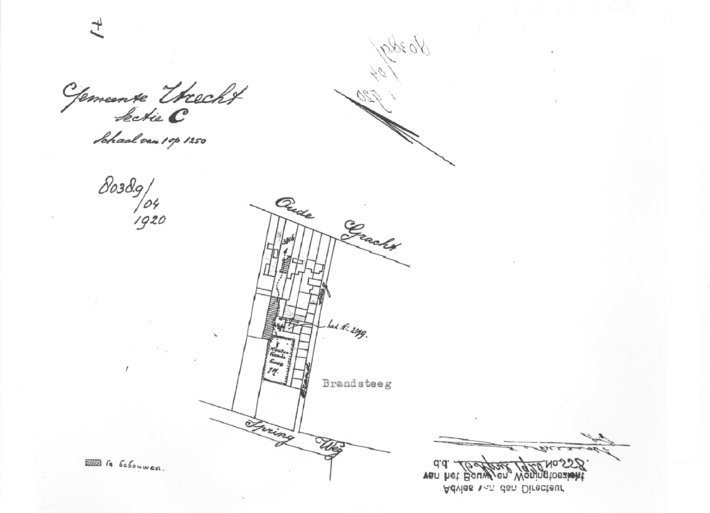 Gemeente Utrecht
Sectie C
Schaal van 1 op 1250
80389/
/04
1920
80389/
04/
1920
Oude Gracht
kad. No. 2199.
Brandsteeg
Spring Weg
te bebouwen.
Advies van den Directeur
van het Bouw en Woningtoezicht
d.d. 16 April 1920 No 558.